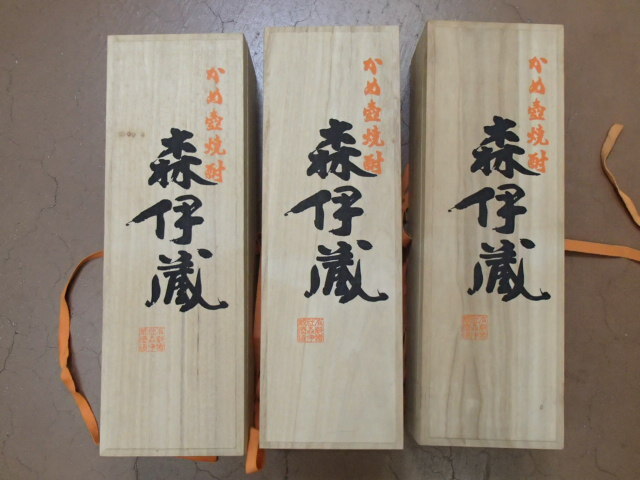 かめ壺焼酎
森伊蔵
かめ壺焼酎
森伊蔵
かめ壺焼酎
森伊蔵